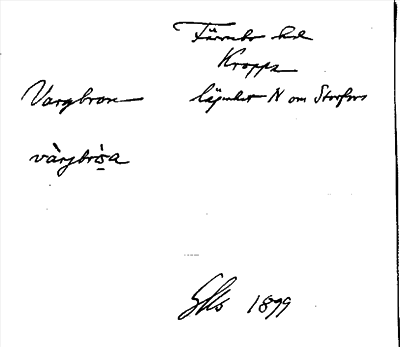 Färnebo hd
Kroppa
Vargbron lägenhet N om Storfors
vàrgbròa
1899